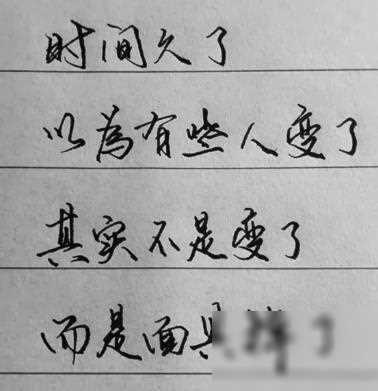 时间久了
以為有些人变了
其实不是变了
而是面